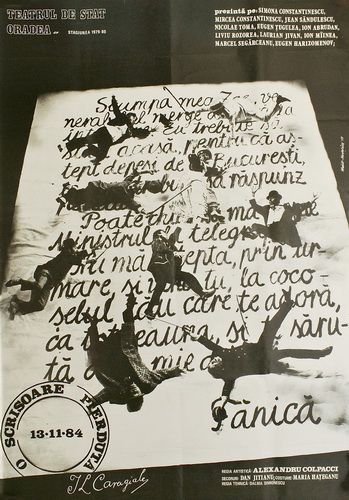 TEATRUL DE STAT
ORADEA
STAGIUNEA 1979-80
prezintă pe: SIMONA CONSTANTINESCU,
MIRCEA CONSTANTINESCU, JEAN SĂNDULESCU,
NICOLAE TOMA, EUGEN ȚUGULEA, ION ABRUDAN,
LIVIU ROZOREA, LAURIAN JIVAN, ION MÎINEA,
MARCEL SEGĂRCEANU, EUGEN HARIZOMENOV;
Scumpa mea Zoe, ve
nerabilul merge
Eu trebuie să
acasă, pentru că aș-
tept depeși de București,
răspunz
Poate
ministrul telegr
prin ur
mare, și tu, la coco-
șelul tău care te adoră,
ca totdeauna, și te săru-
tă mie de
Fănică
O SCRISOARE PIERDUTĂ
13·11·84
IL Caragiale
REGIA ARTISTICĂ: ALEXANDRU COLPACCI
DECORURI DAN JITIANU, COSTUME MARIA HAȚEGANU